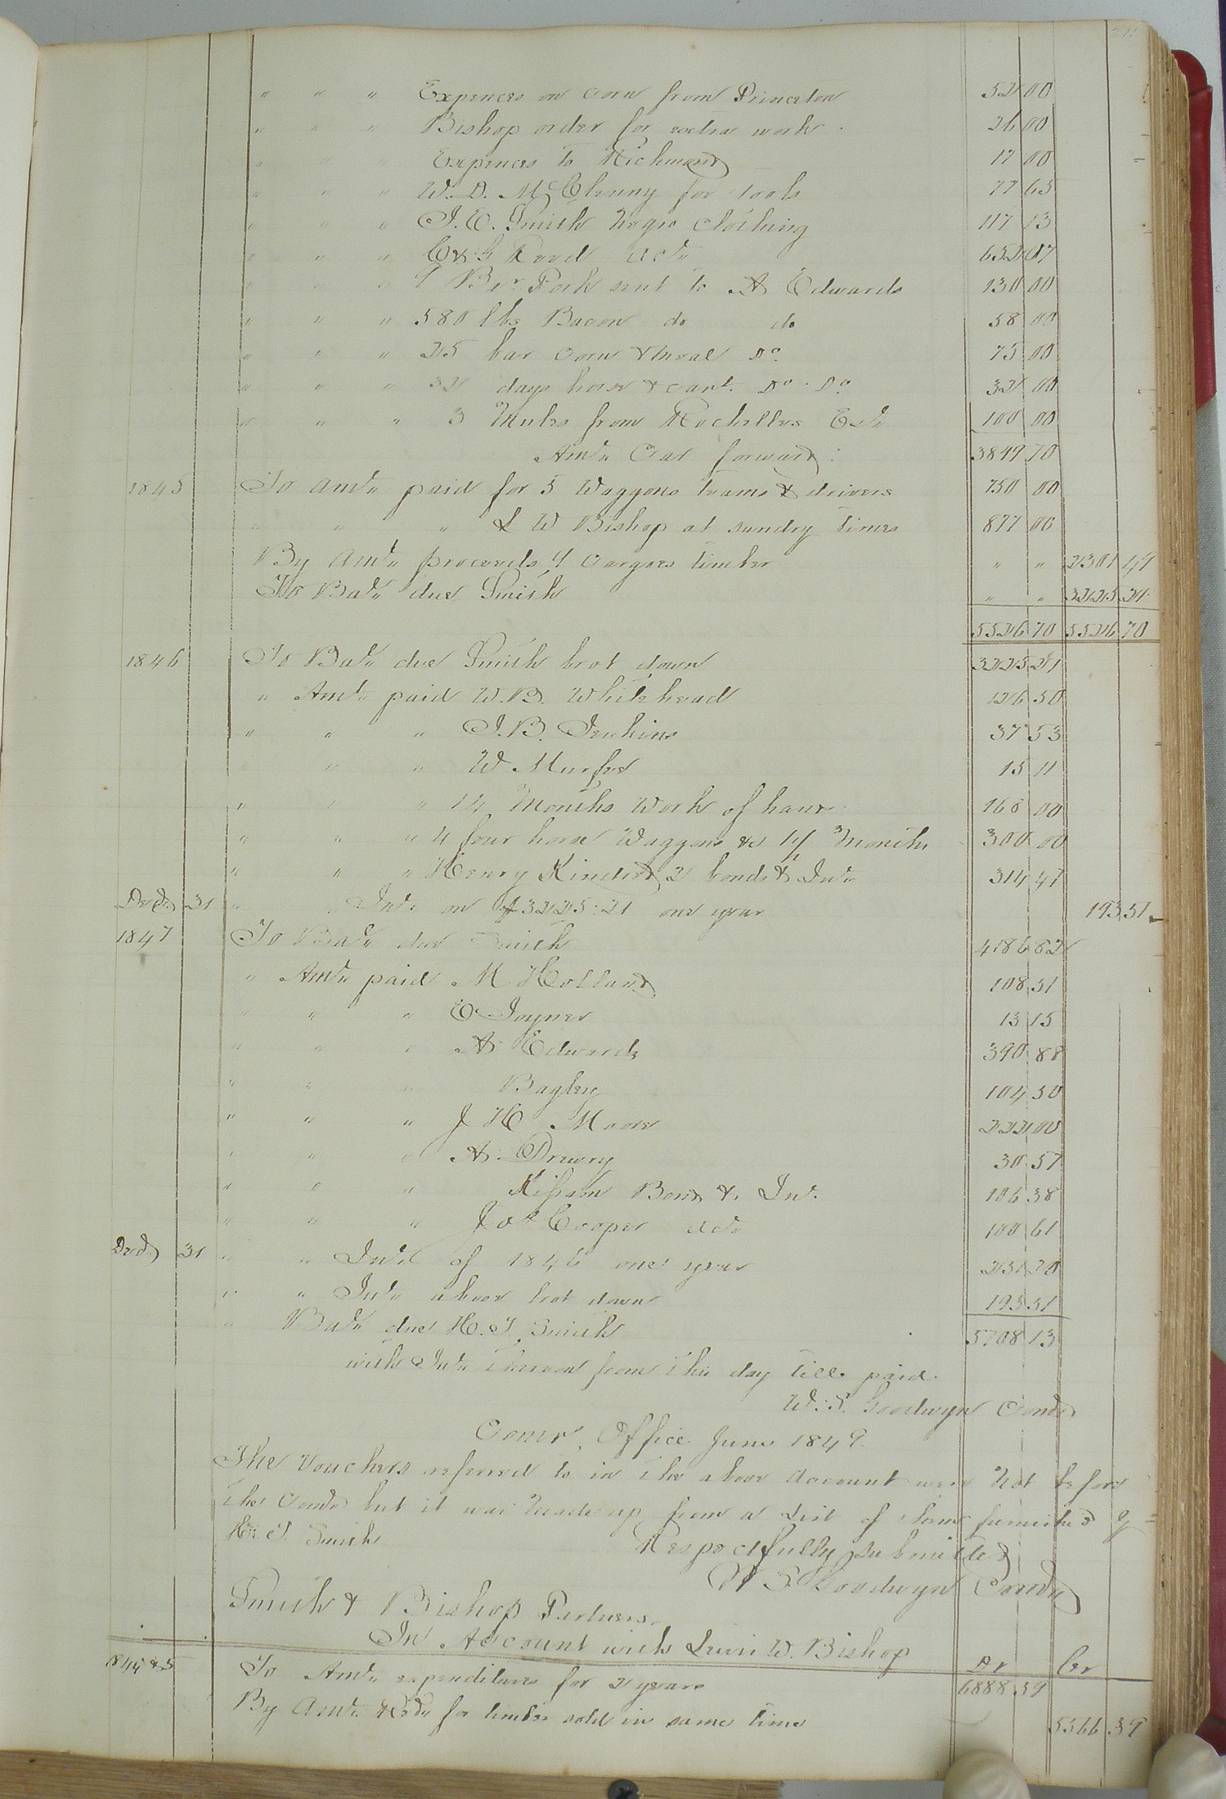 " " " Expences on corn from Princeton 52 00
" " " Bishop order for extra work 26 00
" " " Expences to Richmond 17 00
" " " W. D. McClenny for tools 77 65
" " " J. E. Smith Negro Clothing 117 13
" " " C & G Rood Acct 652 07
" " " 9 Brs Pork sent to A Edwards 130 00
" " " 580 lbs Bacon do do 58 00
" " " 25 bar corn & meal Do 75 00
" " " 32 days horse & cart Do Do 32 00
" " " 3 Mules from Rochelles Est 100 00
Amt Car forward 3899 70
1845 To Amt paid for 5 Waggons teams & drivers 750 00
" " " L W Bishop at sundry times 877 00
By Amt proceeds 4 cargoes timber " " 2301 49
To Balt due Smith " " 3225 21
5526 70 5526 70
1846 To Balt due Smith brot down 3225 21
" Amt paid W. B. Whitehead 126 50
" " " J. B. Jenkins 37 53
" " " W Murfee 15 11
" " " 14 Months Work of hand 168 00
" " " 4 four horse Waggons &c 1 1/2 Months 300 00
" " " Henry Kindred 2 bonds & Int 314 47
Decr 31 " " Int on $3225.21 one year 193.51
1847 To Balt due Smith 4186 82
" Amt paid M Holland 108 51
" " " E Joyner 13 15
" " " A Edwards 390 88
" " " Bagley 104 50
" " " J H Moore 222 00
" " " A Drewry 30 57
" " " Kissam Bond & Int 106 38
" " " Jos Cooper Acct 100 61
Decr 31 " " Int of 1846 one year 251 20
" " Int above brot down 193 51
" Balt due H. T. Smith 5708 13
with Int thereon from this day till paid
W. S. Goodwyn Comr
Comr Office June 1849
The Vouchers referred to in the above Account were Not before
the Comr but it was made up from a List of them furnished by
H. T. Smith Respectfully submitted
W S Goodwyn Comr
Smith & Bishop Partners
In Account with Lewis W. Bishop
Dr Cr
1844 & 5 To Amt expenditures for 2 years 6888 39
By Amt Recd for timber sold in same time 5566 39